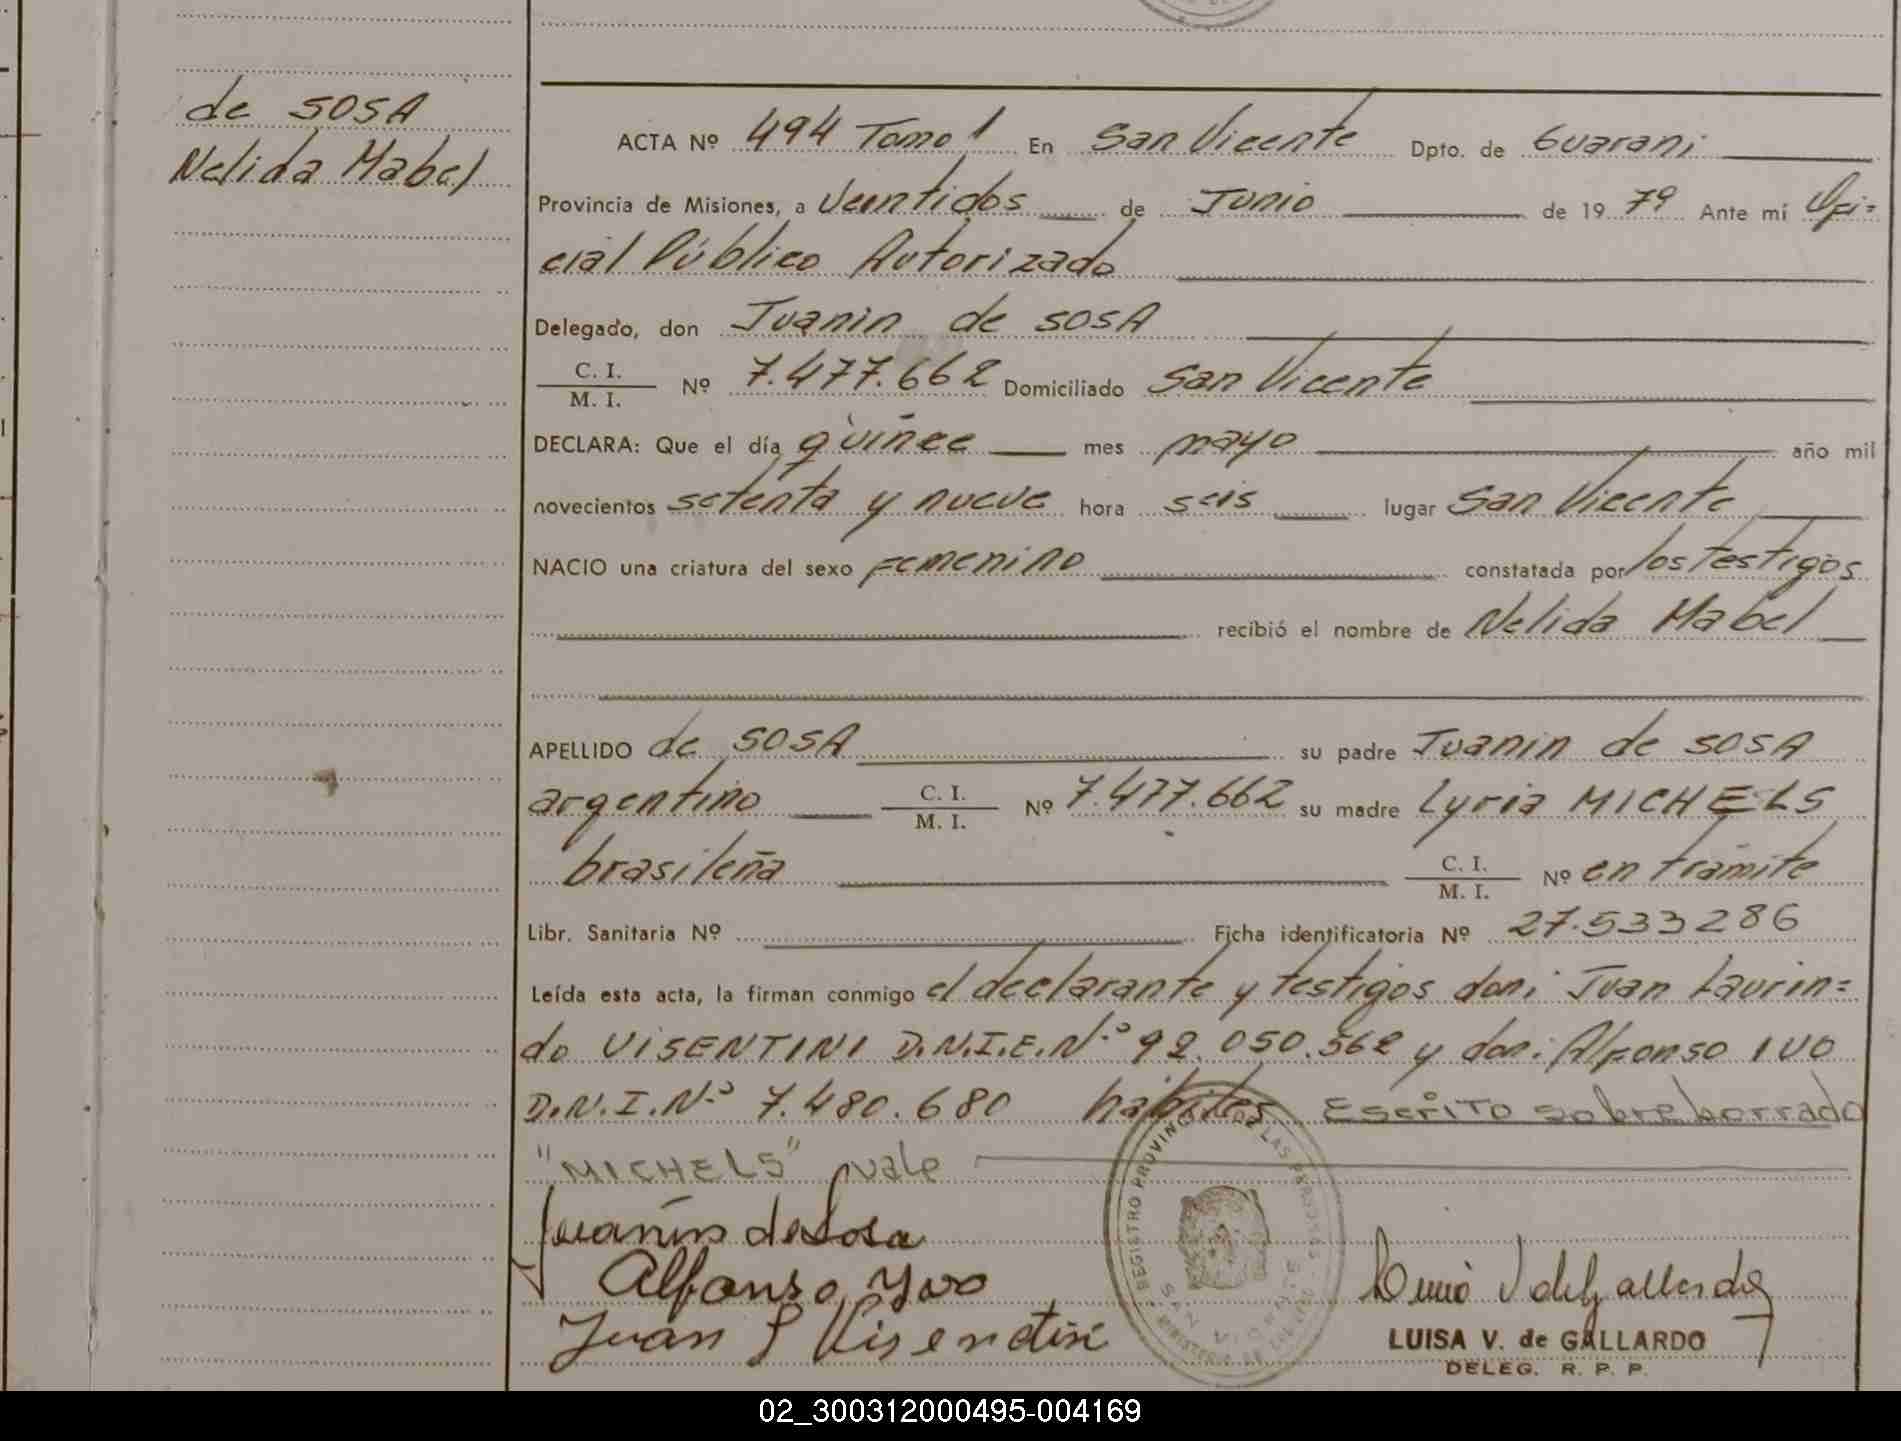 de SOSA
Nelida Mabel
ACTA Nº 494 Tomo 1 En San Vicente Dpto. de Guarani
Provincia de Misiones, a Veintidos de Junio de 1979 Ante mí Ofi=
cial Público Autorizado
Delegado, don Juanin de SOSA
C. I. / M. I. Nº 7.477.662 Domiciliado San Vicente
DECLARA: Que el día quince mes mayo año mil
novecientos setenta y nueve hora seis lugar San Vicente
NACIO una criatura del sexo Femenino constatada por los testigos
recibió el nombre de Nelida Mabel
APELLIDO de SOSA su padre Juanin de SOSA
argentino C. I. / M. I. Nº 7.477.662 su madre Lyria MICHELS
brasileña C. I. / M. I. Nº en trámite
Libr. Sanitaria Nº Ficha identificatoria Nº 27.533286
Leída esta acta, la firman conmigo el declarante y testigos don: Juan Laurin=
do VISENTINI D.N.I.E.Nº 92.050.562 y don: Alfonso IVO
D.N.I.Nº 7.480.680 hábiles Escrito sobre borrado
"MICHELS" vale
Juanin de Sosa
Alfonso Yvo
Juan L Visentini
REGISTRO PROVINCIAL DE LAS PERSONAS
SAN VICENTE
LUISA V. de GALLARDO
DELEG. R. P. P.
02_300312000495-004169